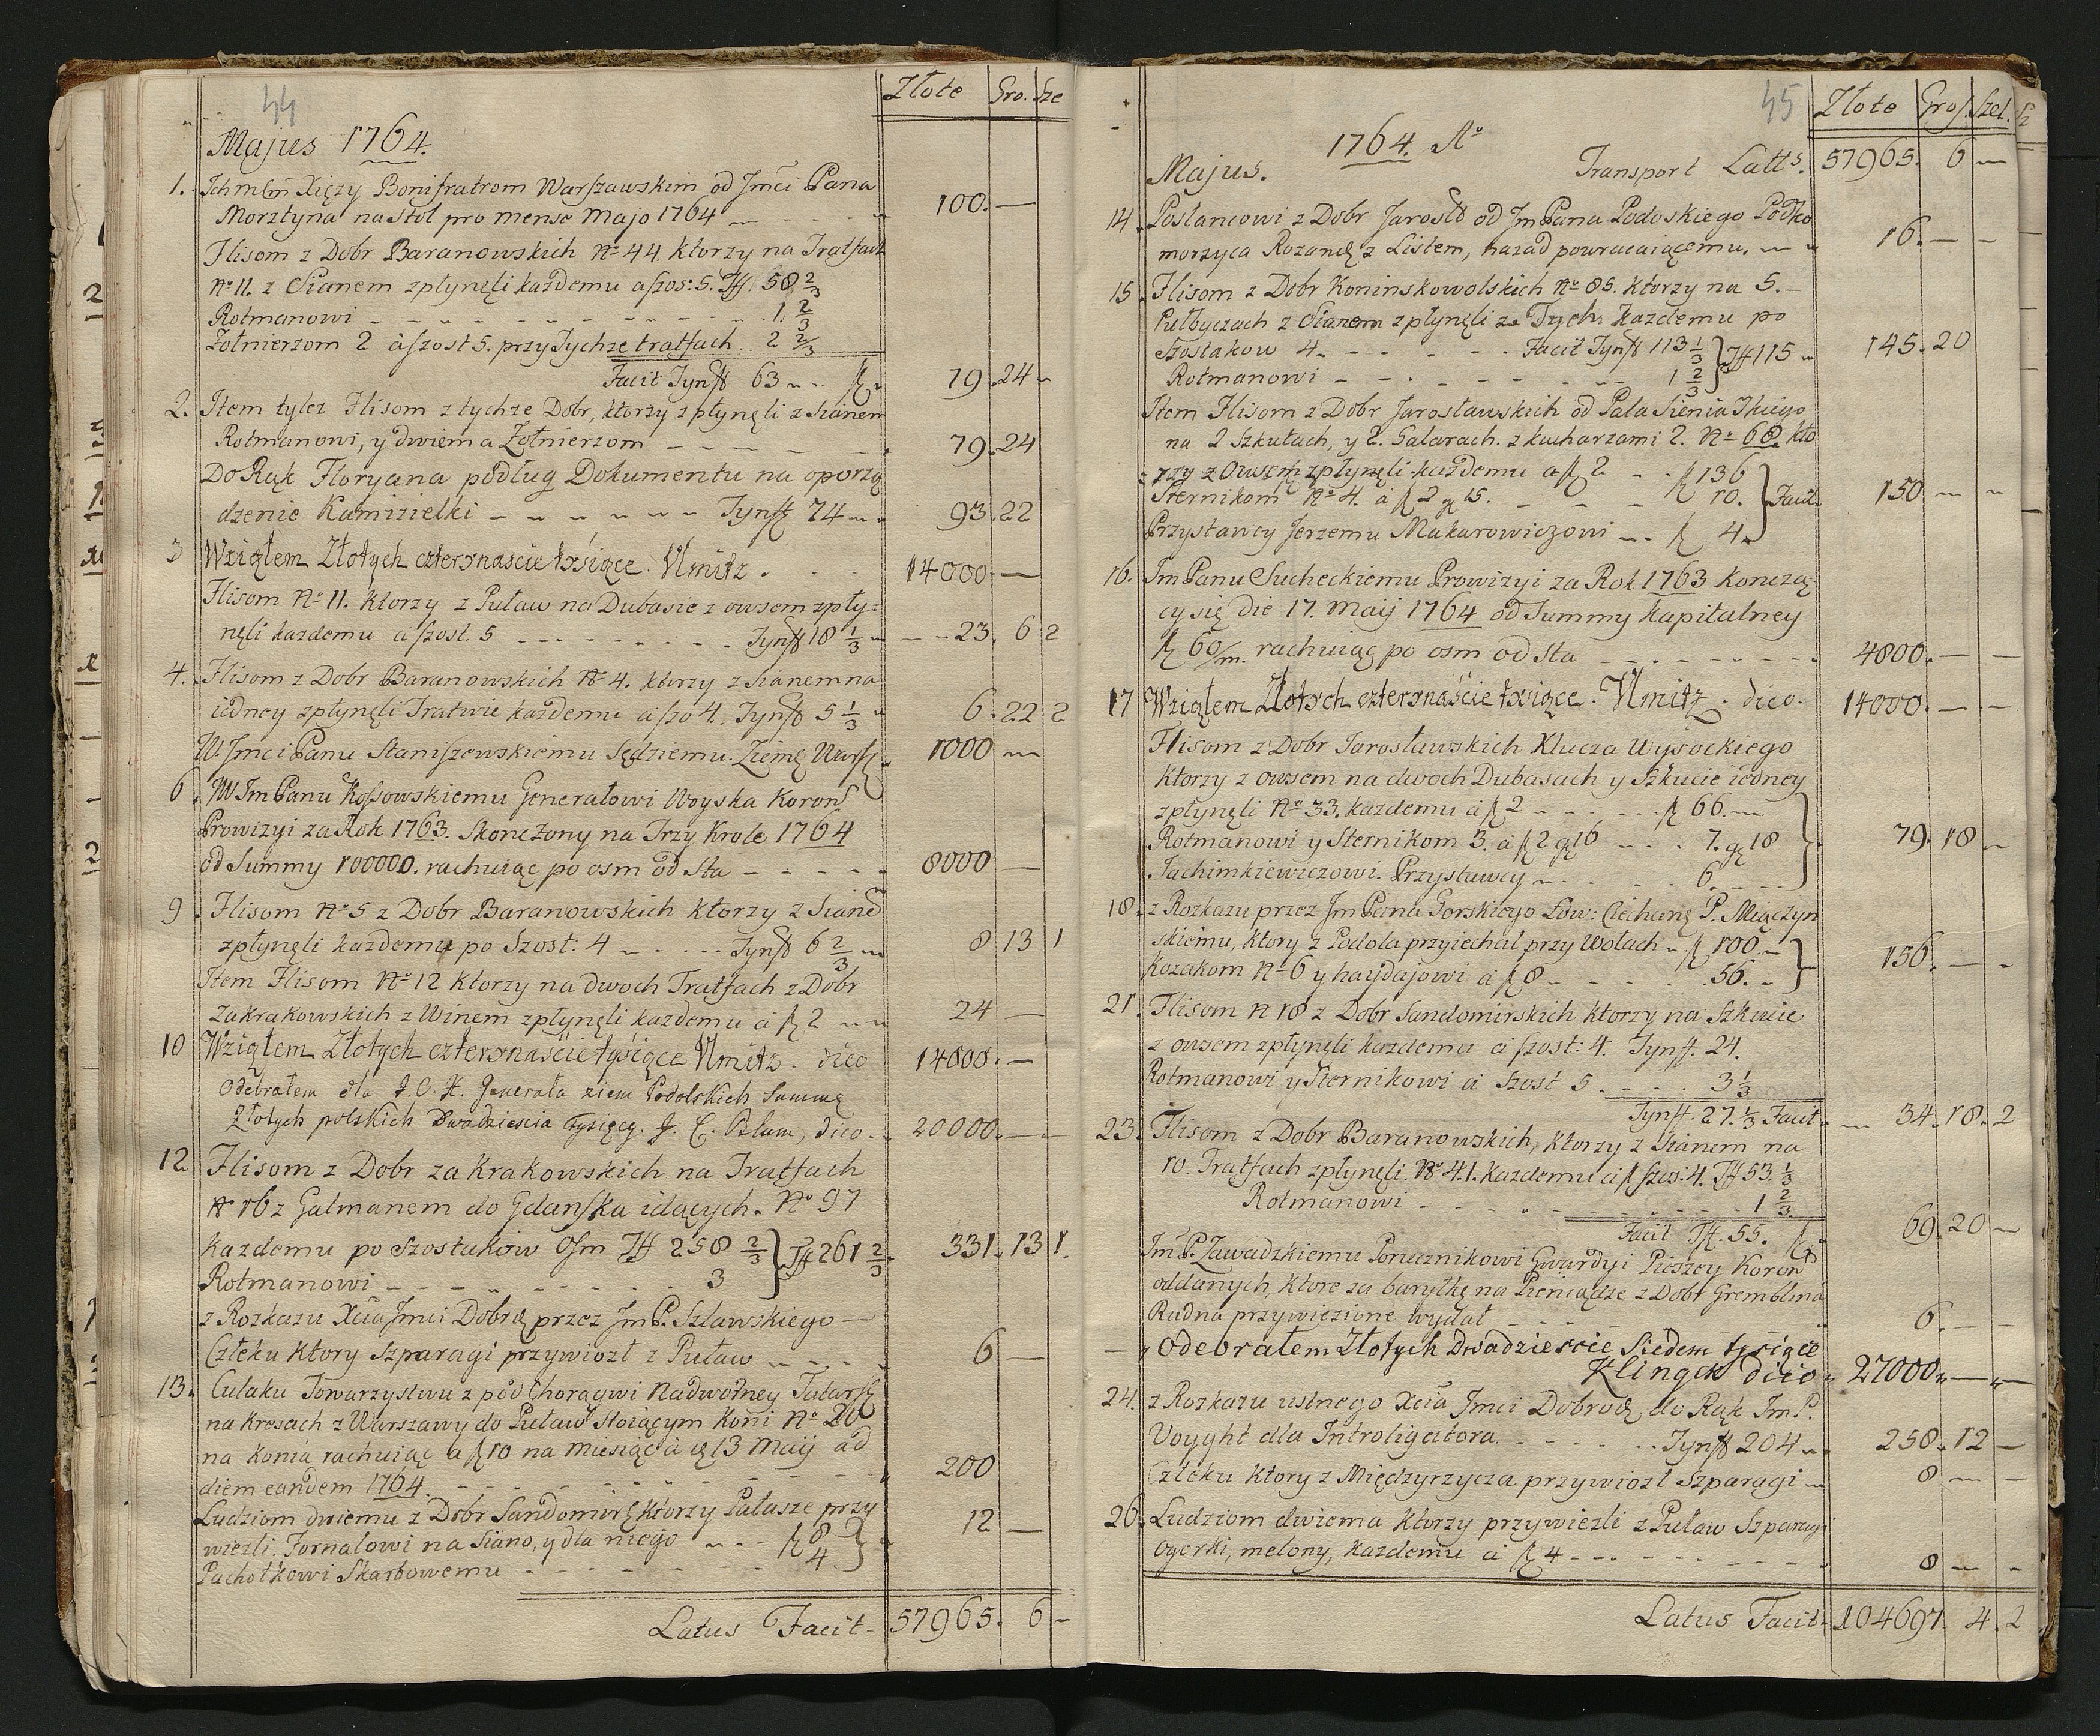 44
Złote Gro. Sze
Majus 1764.
1. Ichmćm Xięzy Bonifratrom Warszawskim od Jmći Pana
Morztyna na stoł pro mense Majo 1764 100. —
Flisom z Dobr Baranowskich No 44. ktorzy na Tratfach
No 11. z Sianem zpłynęli każdemu a szos: 5. Tff. 58 2/3
Rotmanowi 1. 2/3
Żołnierzom 2 à szost 5. przy Tychże tratfach 2 2/3
Facit Tynff 63 79.24
2. Item tylez Flisom z tychze Dobr, ktorzy zpłynęli z Sianem
Rotmanowi, y dwiema Żołnierzom 79.24
Do Rąk Floryana podług Dokumentu na oporzą
dzenie Kamizielki Tynff 74 93.22
3 Wziąłem Złotych czternascie tysiące. Umitz. 14000. —
Flisom No 11. ktorzy z Puław na Dubasie z owsem zpły=
nęli kazdemu à szost. 5 Tynff 18 1/3 23. 6 2
4. Flisom z Dobr Baranowskich No 4. ktorzy z Sianem na
iedney zpłynęli Tratwie każdemu a szo 4. Tynff 5 1/3 6.22 2
W. Jmci Panu Staniszewskiemu Sędziemu. Ziemę Warsz 1000
6. W Jm Panu Kossowskiemu Generałowi Woyska Koron
Prowizyi za Rok 1763. Skonczony na Trzy Krole 1764
od Summy 100000. rachuiąc po osm od Sta 8000 —
9. Flisom No 5 z Dobr Baranowskich ktorzy z Siane
zpłynęli każdemu po Szost: 4 Tynff 6 2/3 8 13 1
Item Flisom No 12 ktorzy na dwoch Tratfach z Dobr
Zakrakowskich z Winem zpłynęli kazdemu à 2 24 —
10 Wziąłem Złotych czternaście tysiące Umitz. dico 14000. —
Odebrałem dla J.O.X. Generała ziem Podolskich Summę
Złotych polskich Dwadziescia Tysięcy. J. C. Blum, dico. 20000. —
12. Flisom z Dobr za Krakowskich na Tratfach
No 16 z Gatmanem do Gdanska idących. No 97
Kazdemu po Szostakow Osm Tff 258 2/3 } Tff 261 2/3 331.13 1.
Rotmanowi 3
z Rozkazu Xcia Jmci Dobrę przez Jm P. Szlawskiego —
Człeku ktory Szparagi przywiozł z Puław 6 —
13. Culaku Towarzystwu z pod Chorągwi Nadworney Tatarsk
na Kresach z Warszawy do Puław stoiącym Koni No 20
na Konia rachuiąc a 10 na miesiąc à 13 Maij ad
diem eandem 1764. 200
Ludziom dwiema z Dobr Sandomirs ktorzy Pałasze przy
wiezli. Fornalowi na Siano, y dla niego 8 12 —
Pachołkowi Skarbowemu 4
Latus Facit 57965. 6 —
45
Złote Gros. Szel.
1764. Ao
Majus. Transport Latts. 57965. 6 —
14. Posłancowi z Dobr Jarosł od Jm Pana Podoskiego Podko
morzyca Rozanę z Listem, nazad powracaiącemu. 16. — —
15. Flisom z Dobr Koninskowolskich No 85. ktorzy na 5. —
Pułbyczach z Sianem zpłynęli ze Tychs Każdemu po
Szostakow 4. Facit Tynff 113 1/3 } Tff 115 145.20
Rotmanowi 1 2/3
Item Flisom z Dobr Jarosławskich od Pala Sienia
na 2 Szkutach, y 2. Galarach. z kucharzami 2. No 68. kto
rzy z Owsem zpłynęli każdemu a 2 136
Sternikom No 4. à 2 g 15. 10. } Facit 150
Przystawcy Jerzemu Makarowiczowi 4.
16. Jm Panu Sucheckiemu Prowizyi za Rok 1763 Konczą
cy się die 17. Maij 1764 od Summy Kapitalney
60/m. rachuiąc po osm od Sta 4800. — —
17 Wziąłem Złotych czternaście tysiące. Umitz. dico. 14000. — —
Flisom z Dobr Jarosławskich Klucza Wysockiego
ktorzy z owsem na dwoch Dubasach y Szkucie iedney
zpłynęli No 33. kazdemu à 2 66.
Rotmanowi y Sternikom 3. à 2 g 16 7. g 18 79.18
Jachimkiewiczowi. Przystawcy 6.
18. z Rozkazu przez Jm Pana Gorskiego Łow: Ciechanę P. Miączyn
skiemu, ktory z Podola przyiechał przy Wołach 100.
Kozakom No 6 y haydajowi à 8 56. 156. — —
21. Flisom n 18 z Dobr Sandomirskich ktorzy na Szkucie
z owsem zpłynęli kazdemu à szost: 4. Tynff. 24.
Rotmanowi y Sternikowi à Szost 5. 3 1/3
Tynff. 27. 1/3 Facit 34.18.2
23. Flisom z Dobr Baranowskich, ktorzy z Sianem na
10. Tratfach zpłynęli. No 41. kazdemu à szos: 4. Tff 53. 1/3
Rotmanowi 1 2/3
Facit Tff. 55. 69.20
Jm P. Zawadzkiemu Porucznikowi Gwardyi Pieszey Koron
oddanych, ktore za baryłkę na Pieniądze z Dobr Gremblina
Rudna przywiezione wydał 6. — —
— Odebrałem Złotych Dwadzieście Siedem tysięce
Klingen dico 27000. — —
24. z Rozkazu ustnego Xcia Jmci Dobrod, do Rąk Jm P.
Voyght dla Introligatora. Tynff 204 258.12 —
Człeku ktory z Międzyrzycza przywiozł Szparagi 8 — —
26. Ludziom dwiema ktorzy przywiezli z Puław Szparagi
ogorki, melony, kazdemu à 4 8 — —
Latus Facit 104697. 4. 2